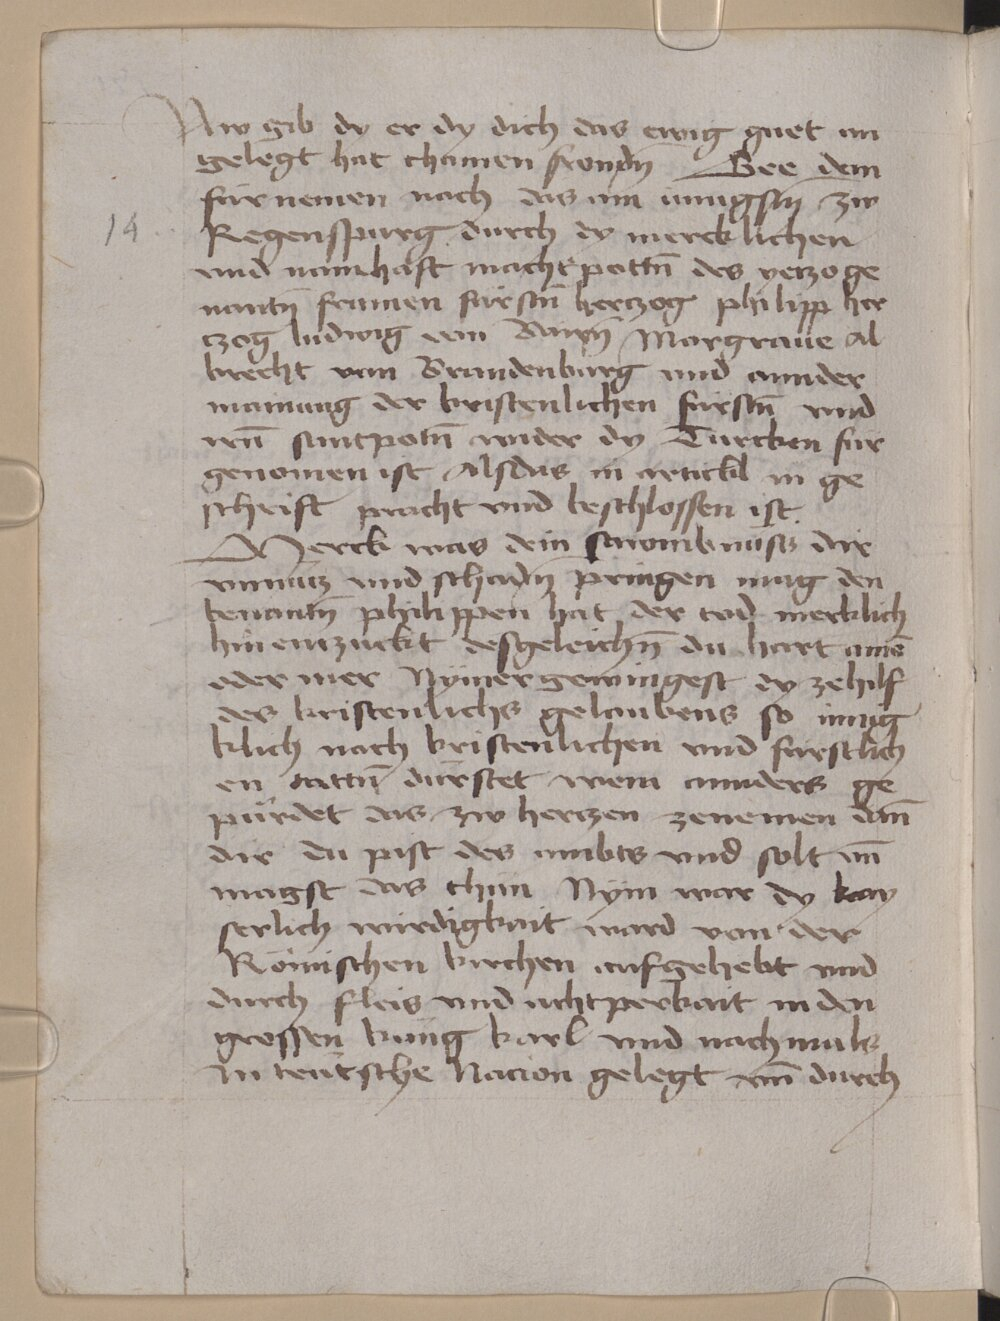 Nw gib dy er dy dich das ewig guet an
gelegt hat chainen Gee dem
fürnemen nach das am iungstn̄ zw
14
Regenspurg durch dy mercklichen
vnd namhaft machtpottn̄ des yetzoge
nantn̄ frumen fürstn̄ hertzog philipp her
tzog ludwig von Bairn̄ Morgraue Al
brecht von Brandenburg vnd annder
mainung der kristenlichen fürstn̄ vnd
irn̄ santpotn̄ wider dy Türcken für
genomen ist Alsdas in artickl in ge
schrift pracht vnd beschlossen ist
Merck was dein sawmbnüss dir
vnnütz vnd schadn̄ pringen mag den
benantn̄ philippen hat der tod merklich
hin entzuckt desgeleichn̄ du hart ainē
oder mer Nymer gewingest dy zehilf
des kristenlichs gelaubens so innig
klich nach kristenlichen vnd fürstlich
en dürstet wem annders ge
pürdet das zw hertzen zenemen dan̄
dir du pist des ambts vnd solt vn̄
magst das thün Nym war dy kay
serlich wirdigkait ward von der
Römischen kirchen aufgehebt vnd
durch fleis vnd achtperkait in den
grossen künig karl vnd nachmals
in teutsche Nacion gelegt vn̄ durch